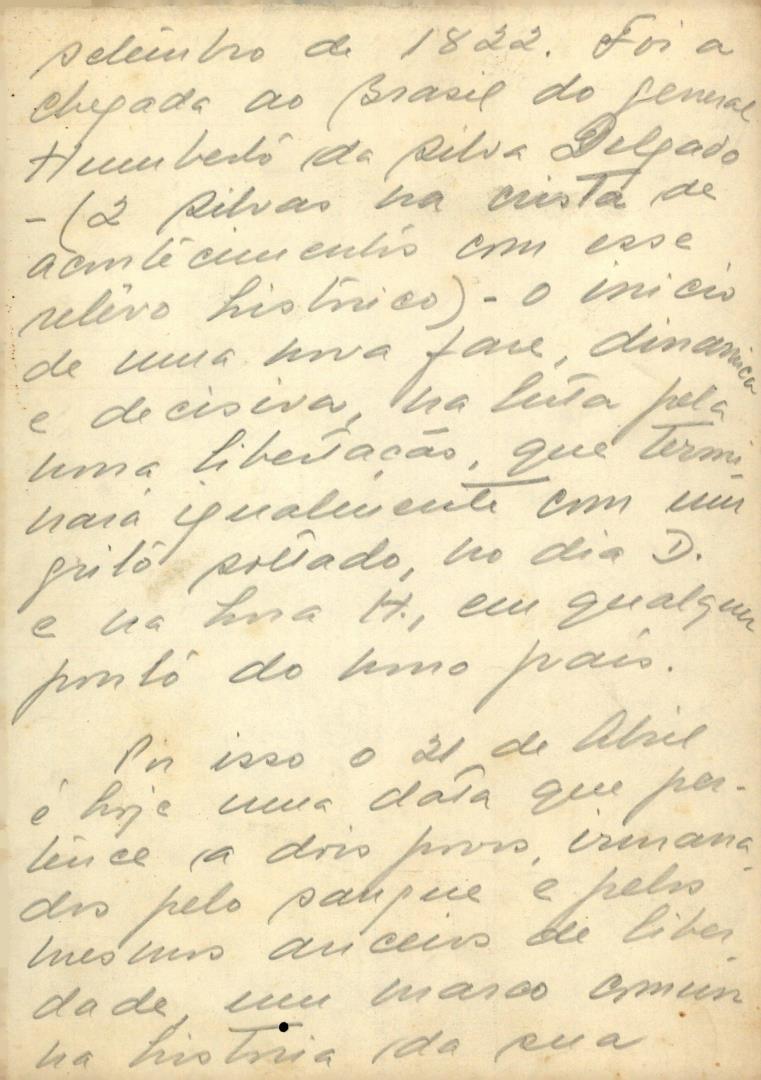 setembro de 1822. Foi a
chegada ao Brasil do general
Humberto da Silva Delgado
- (2 Silvas na crista de
acontecimentos com esse
relêvo histórico) - o inicio
de uma nova fase, dinamica
e decisiva, na luta pela
nossa libertação, que termi-
nará igualmente com um
grito soltado, no dia D.
e na hora H., em qualquer
ponto do nosso país.
Por isso o 21 de Abril
é hoje uma data que per-
tence a dois povos, irmana-
dos pelo sangue e pelos
mesmos anceios de liber-
dade, um marco comum
na história da sua